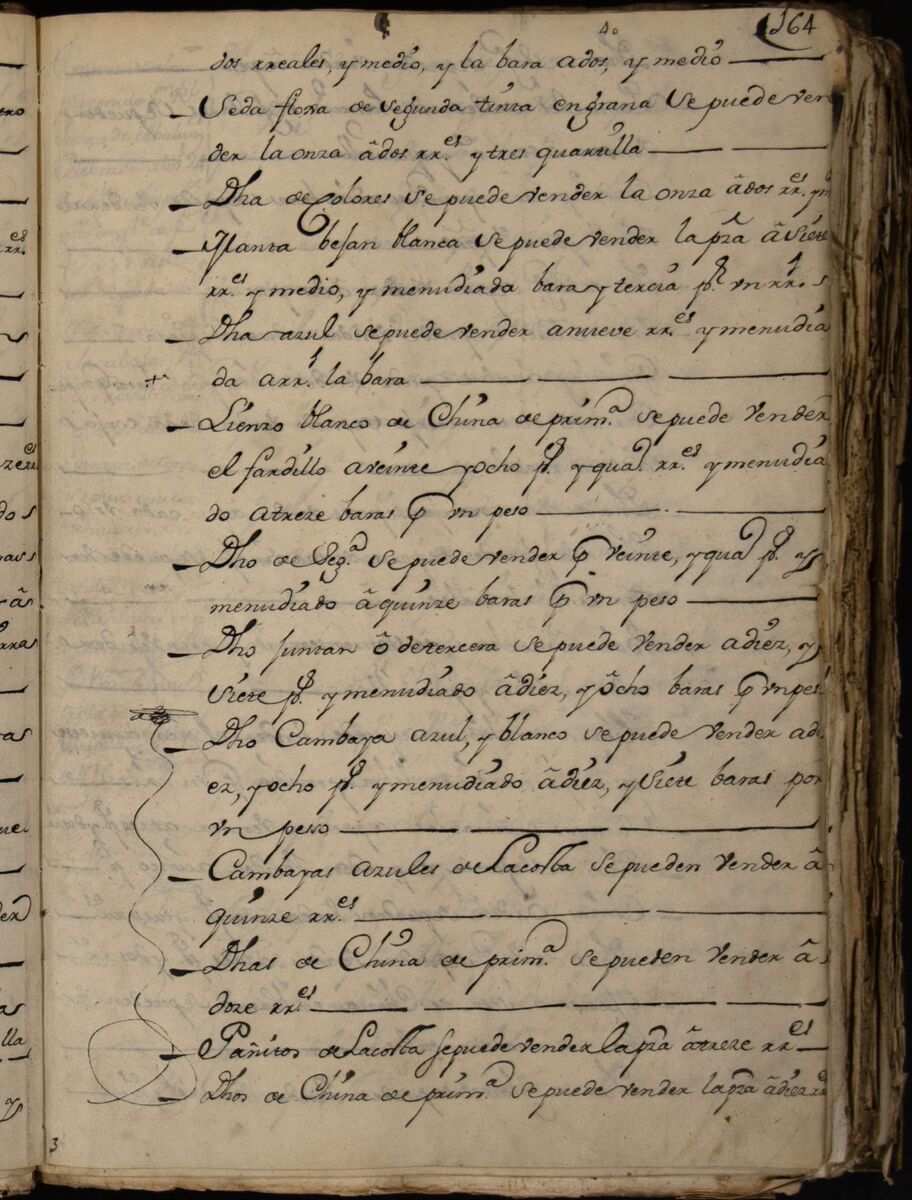 4o 164
dos rreales, y medio, y la bara ados, y medio
Seda floxa de segunda tinta engrana Se puede ven
der la onza âdos rr.es y tres quartilla
Dha de Colores se puede vender la onza âdos rr.es y m
Manta besan blanca se puede vender la pza â Siete
rr.es y medio, y menudiada bara y tercia p.r vn rr.l
Dha azul se puede vender anueve rr.es y menudia
da arr.l la bara
Lienzo blanco de China de prim.a se puede vender
el fardillo aveinte yocho p.s y quat.o rr.es y menudia
do atreze baras p vn peso
Dho de Seg.a se puede vender p veinte, y quat.o p.s y
menudiado âquinze baras p vn peso
Dho Juntan ô detercera se puede vender adiez, y
Siete p.s y menudiado âdiez, yôcho baras p vn peso
Dho Cambaya azul, y blanco se puede vender adi
ez, yocho p.s y menudiado âdiez, y Siete baras por
vn peso
Cambayas azules de Lacosta se pueden vender â
quinze rr.es
Dhas de China de prim.a se pueden vender â
doze rr.es
Pañitos de Lacosta se puede vender la pza âtreze rr.es
Dhos de China de prim.a se puede vender la pza âdiez rr.es
3